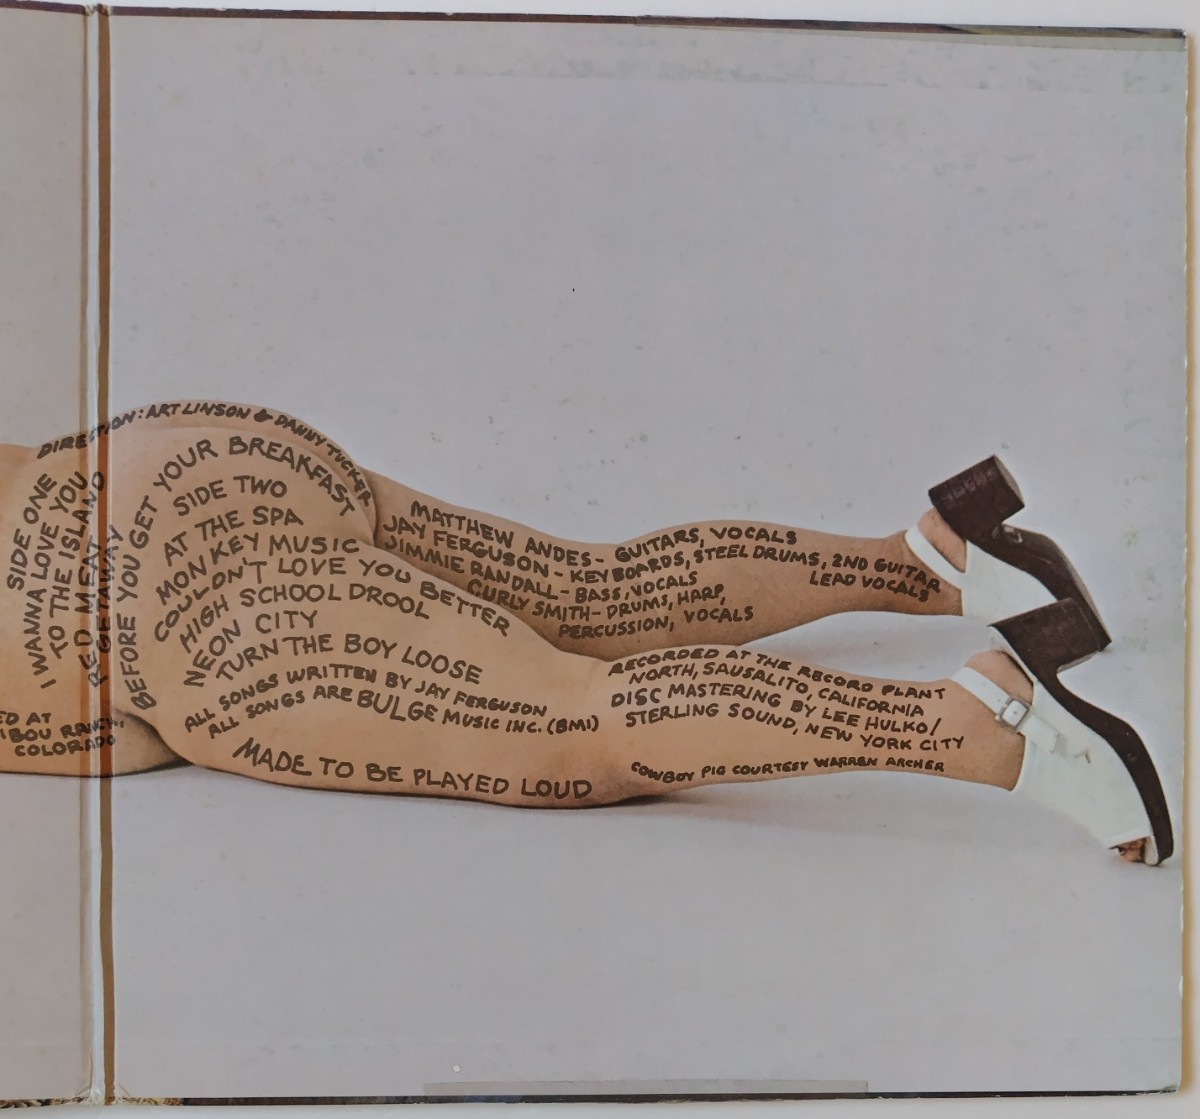 DIRECTION: ART LINSON & DANNY TUCKER
SIDE ONE
I WANNA LOVE YOU
TO THE ISLAND
RED MEAT
GETAWAY
BEFORE YOU GET YOUR BREAKFAST
SIDE TWO
AT THE SPA
MONKEY MUSIC
COULDN'T LOVE YOU BETTER
HIGH SCHOOL DROOL
NEON CITY
TURN THE BOY LOOSE
ALL SONGS WRITTEN BY JAY FERGUSON
ALL SONGS ARE BULGE MUSIC INC. (BMI)
MADE TO BE PLAYED LOUD
MATTHEW ANDES - GUITARS, VOCALS
JAY FERGUSON - KEYBOARDS, STEEL DRUMS, 2ND GUITAR
LEAD VOCALS
JIMMIE RANDALL - BASS, VOCALS
CURLY SMITH - DRUMS, HARP,
PERCUSSION, VOCALS
RECORDED AT THE RECORD PLANT
NORTH, SAUSALITO, CALIFORNIA
DISC MASTERING BY LEE HULKO/
STERLING SOUND, NEW YORK CITY
COWBOY PIG COURTESY WARREN ARCHER
AT
RANCH,
COLORADO